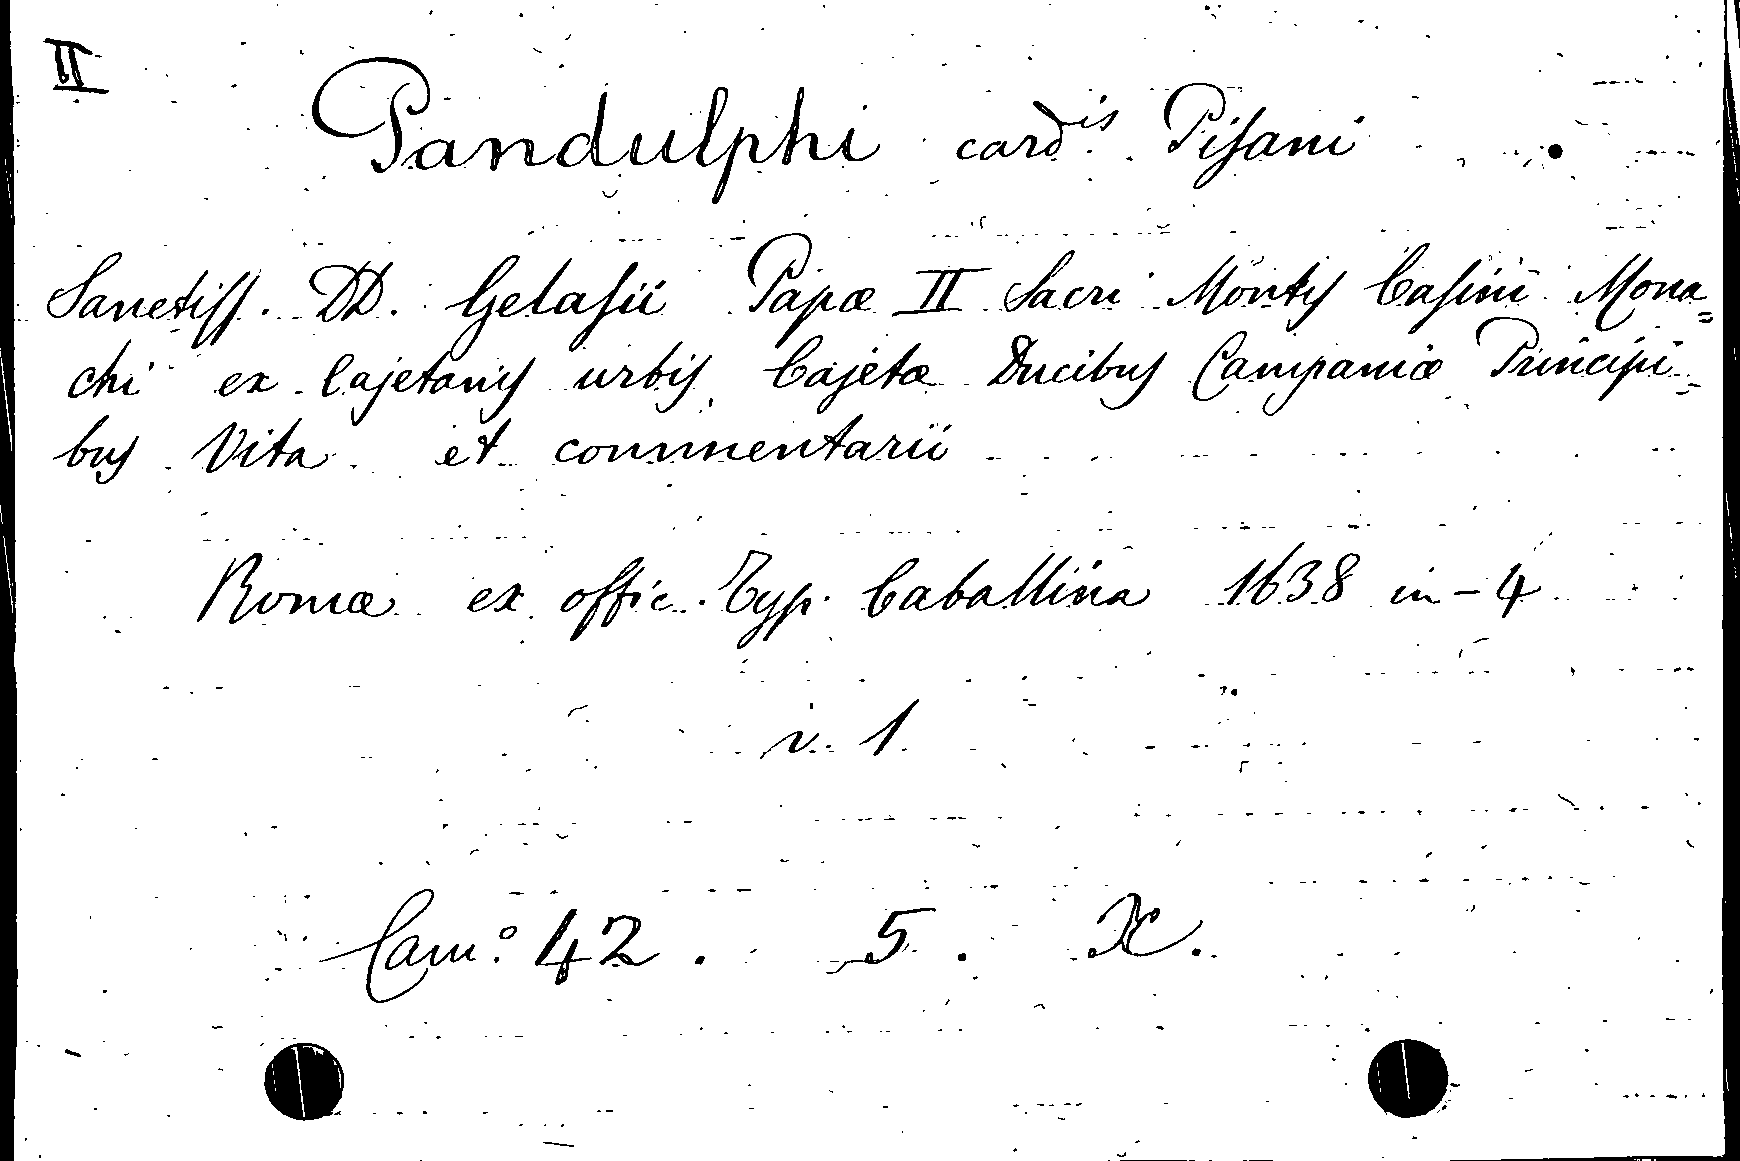 II
Pandulphi card.is Pisani
Sanctiss. DD. Gelasii Papæ II Sacri Montis Casini Mona=
chi ex Cajetanis urbis Cajetæ Ducibus Campaniæ Principi=
bus Vita et commentarii
Romæ ex offic. Typ. Caballina 1638 in-4
v. 1
Cam.º 42. 5. X.